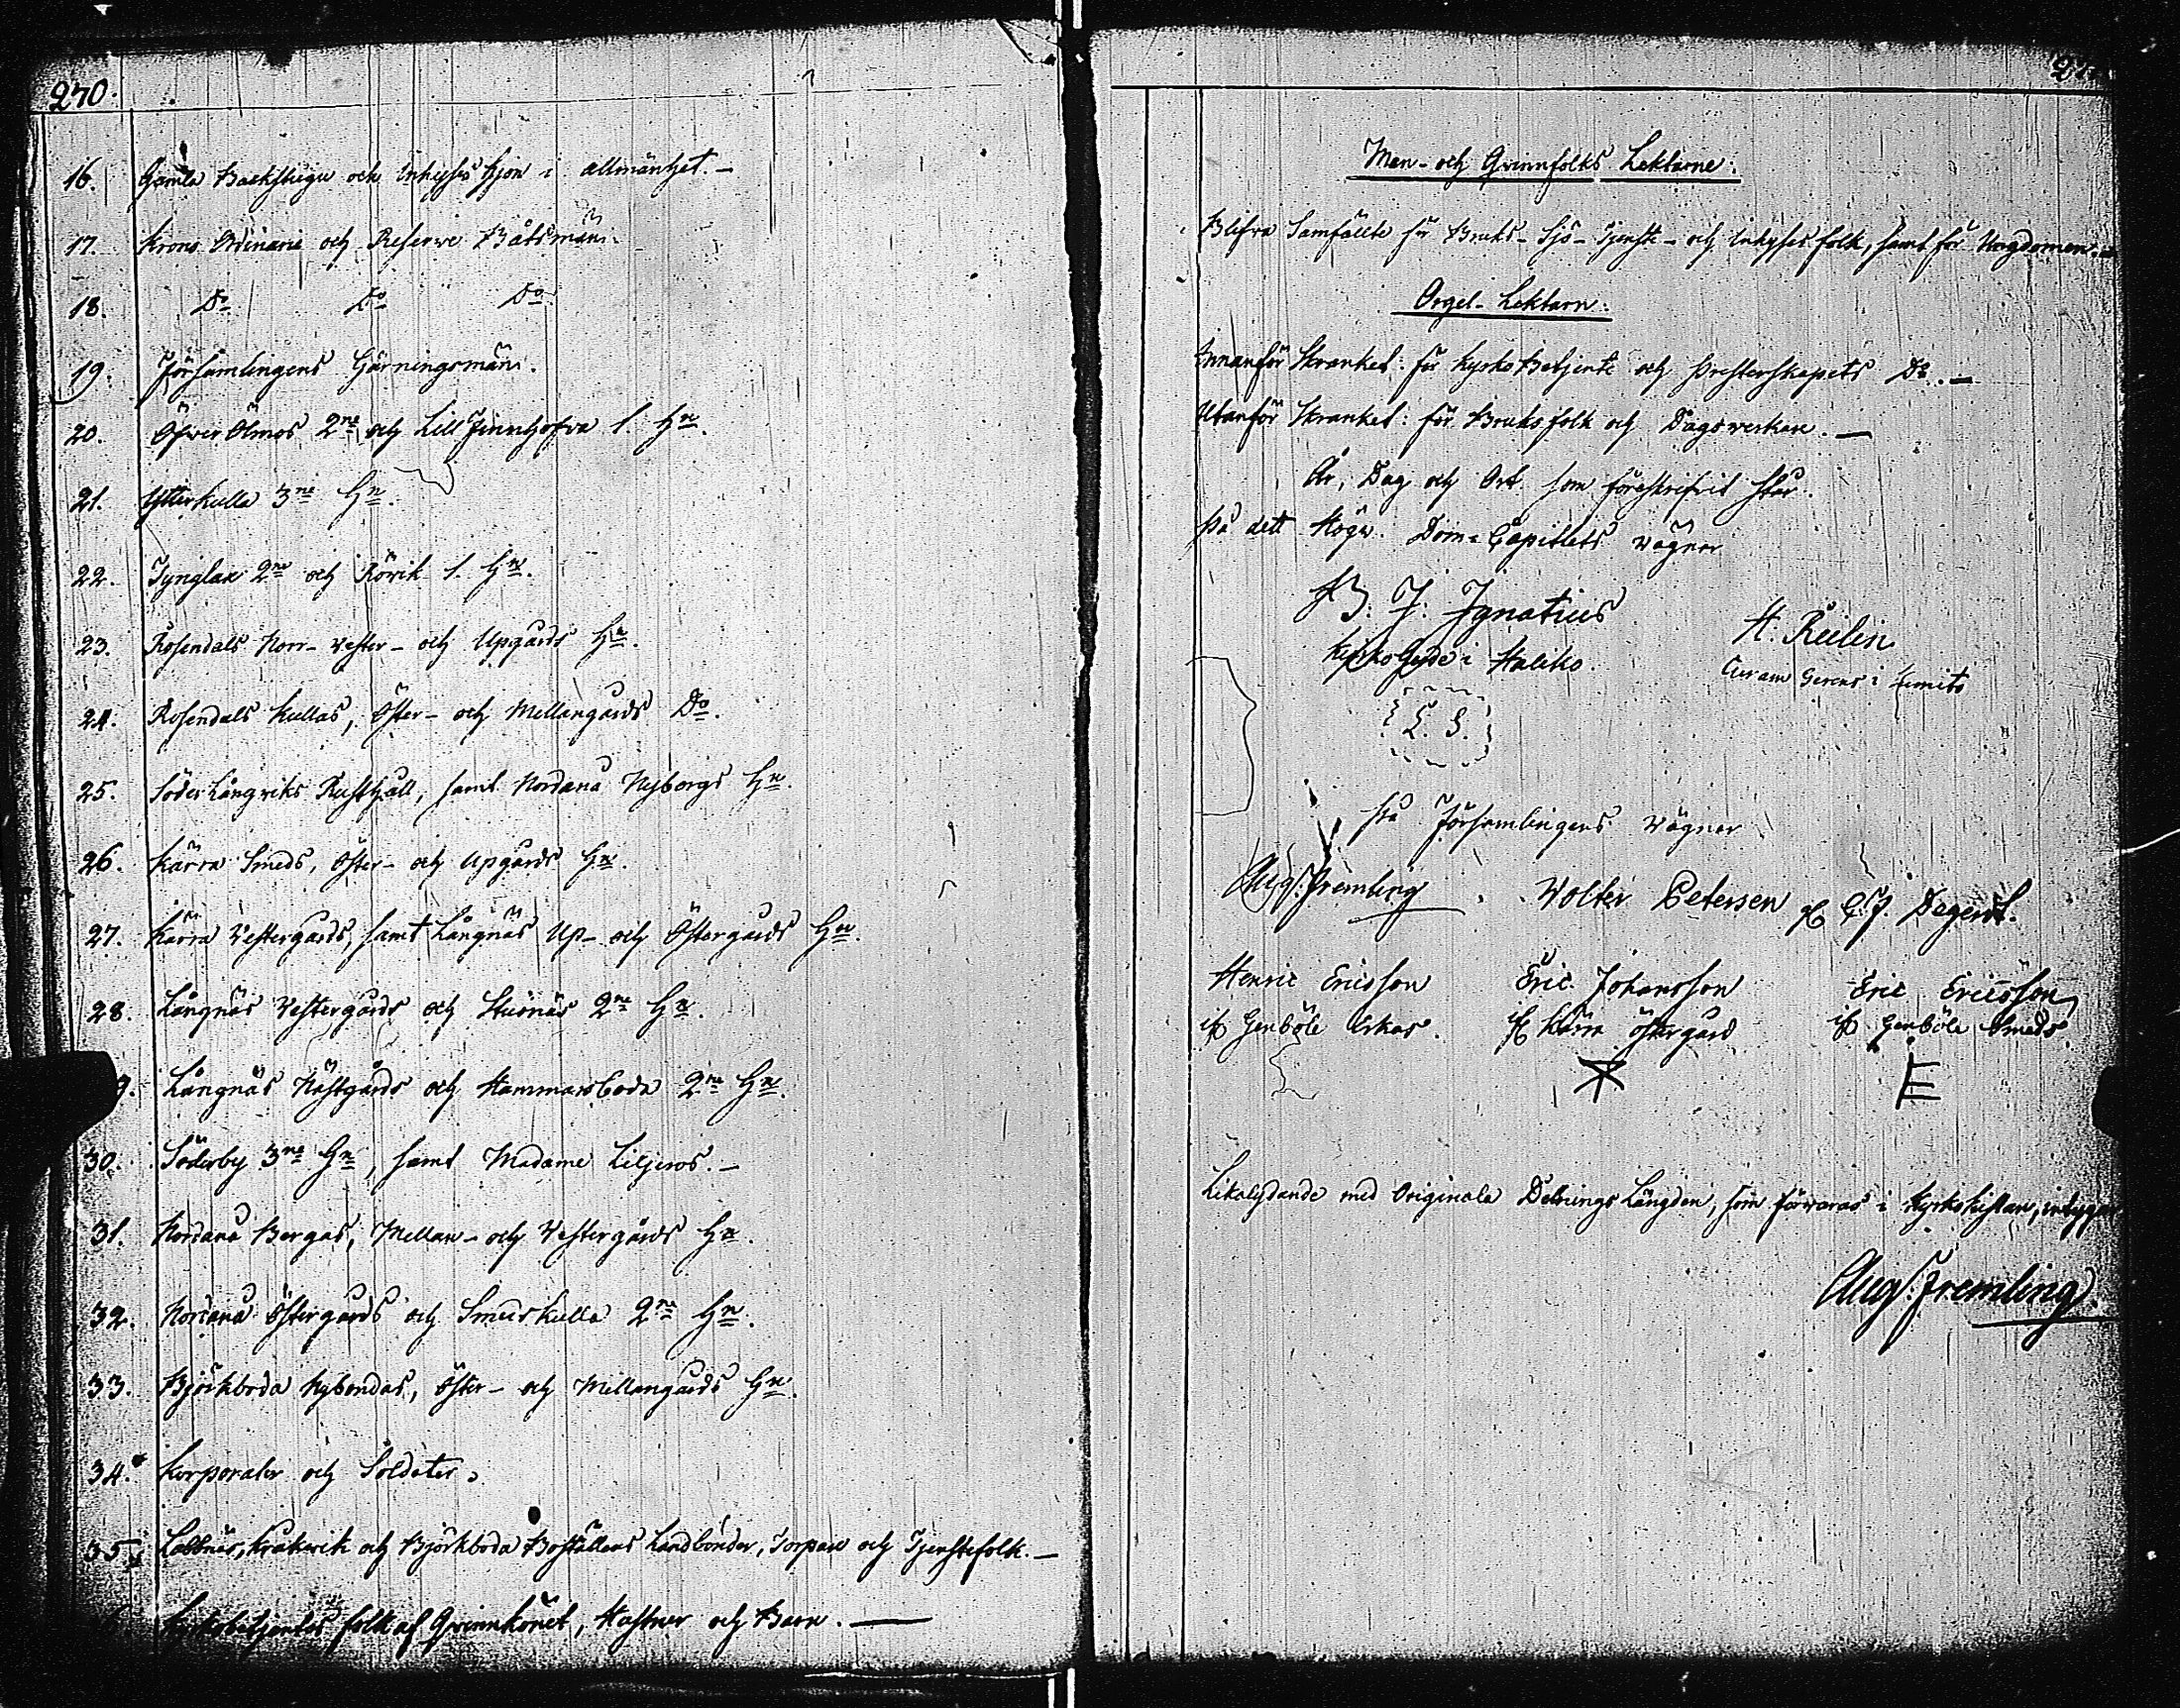 270.
16. Gamla Backstugu och Inhyses hjon i allmänhet. -
17. Krono Ordinarie och Reserve Båtsmän.
18. Do Do Do
19. Församlingens Gärningsmän.
20. Öfver Ölmos 2ne och Lill Finnhofva 1. Hn.
21. Ytterkulla 3ne Hn.
22. Tynglax 2ne och Rövik 1. Hn.
23. Rosendals Norr- Vester- och Upgårds Hn.
24. Rosendals Kullas, Öster- och Mellangårds Do.
25. Söder Långviks Rusthåll, samt Nordanå Nyborgs Hn.
26. Kärra Smeds, Öster- och Upgårds Hn.
27. Kärra Vestergårds, samt Långnäs Up- och Östergårds Hn.
28. Långnäs Vestergårds och Stusnäs 2ne Hn.
9. Långnäs Nästgårds och Hammarsboda 2ne Hn.
30. Söderby 3ne Hn, samt Madame Liljeros. -
31. Nordanå Bergas, Mellan- och Vestergårds Hn.
32. Nordanå Östergårds och Smedskulla 2ne Hn.
33. Björkboda Nybondas, Öster- och Mellangårds Hn.
34. Korporaler och Soldater.
35. Labbnäs, Kråkvik och Björkboda Boställens Landbönder, Torpare och Tjenstefolk. -
Kyrkobetjentes folk af Qvinnkönet, Hustrur och Barn. -
Man- och Qvinnfolks Lektarne:
Blifva Samfällte för Bruks- Sjö- Tjenste- och Inhyses folk, samt för Ungdomen. -
Orgel-Lektarn:
Innanför Skranket: för Kyrko Betjente och Presterskapets Do. -
Utanför Skranket: för Bruksfolk och Dagsverkare. -
År, Dag och Ort som föreskrifvit står.
På dett Högv. Dom-Capitlets vägnar
B. J. Ignatius
H. Relin
Kyrko Herde i Haliko.
Curam Gerens i Kimito
L. S.
På Församlingens vägnar
Aug: Fremling
Wolter Petersen
C. J. Degerth.
Henric Ericsson
Eric Johansson
Eric Ericsson
if Genböle Eskas.
if Kärra Östergård
if Genböle Smeds.
E
Likalydande med Originala Delnings Längden, som förvaras i Kyrkokistan, intygar
Aug: Fremling.